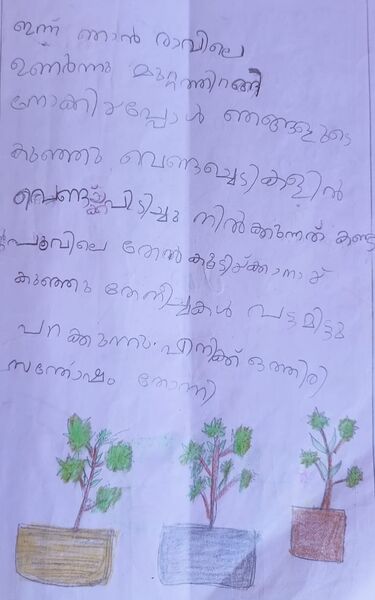 ഇന്ന് ഞാൻ രാവിലെ
ഉണർന്നു മുറ്റത്തിറങ്ങി
നോക്കിയപ്പോൾ ഞങ്ങളുടെ
കുഞ്ഞു വെണ്ടച്ചെടികളിൽ
വെണ്ടയ്ക്ക പിടിച്ചു നിൽക്കുന്നത് കണ്ടു
പൂവിലെ തേൻ കുടിയ്ക്കാനായ്
കുഞ്ഞു തേനീച്ചകൾ വട്ടമിട്ടു
പറക്കുന്നു. എനിക്ക് ഒത്തിരി
സന്തോഷം തോന്നി